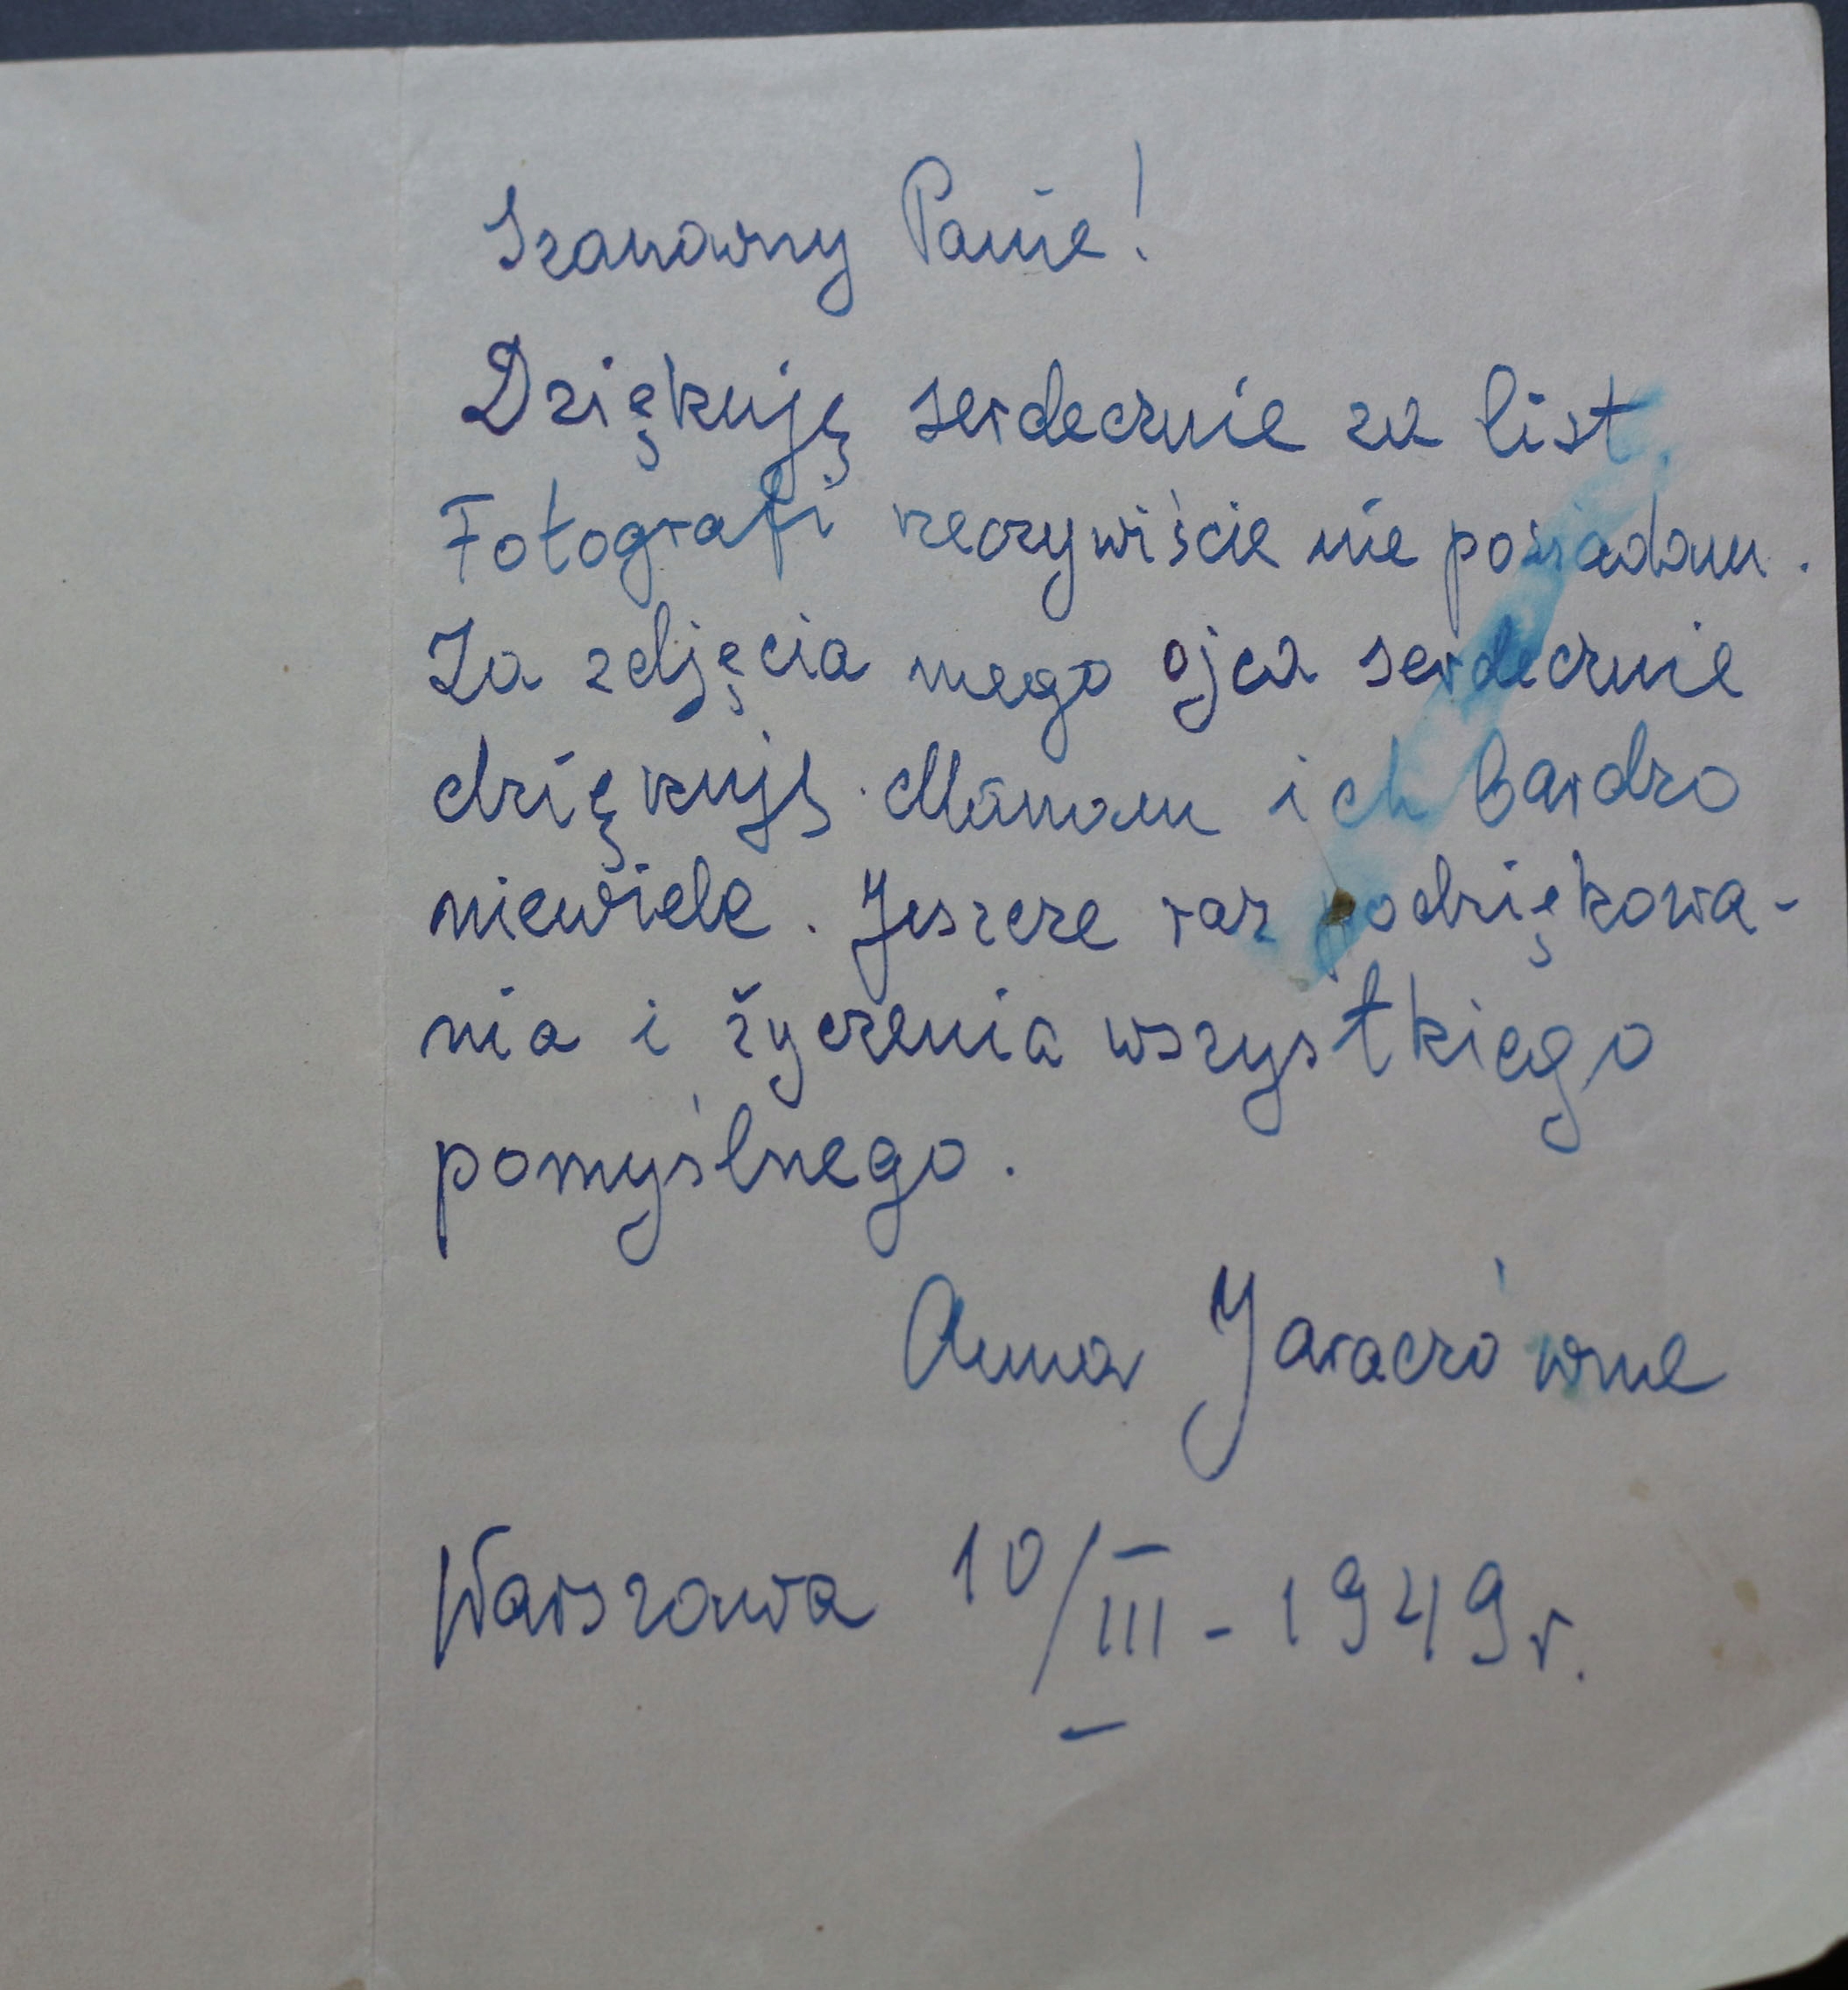 Szanowny Panie!
Dziękuję serdecznie za list.
Fotografi rzeczywiście nie posiadam.
Za zdjęcia mego ojca serdecznie
dziękuję. Mamam ich bardzo
niewiele. Jeszcze raz podziękowa-
nia i życzenia wszystkiego
pomyślnego.
Anna Jaraczówna
Warszawa 10/III - 1949 r.